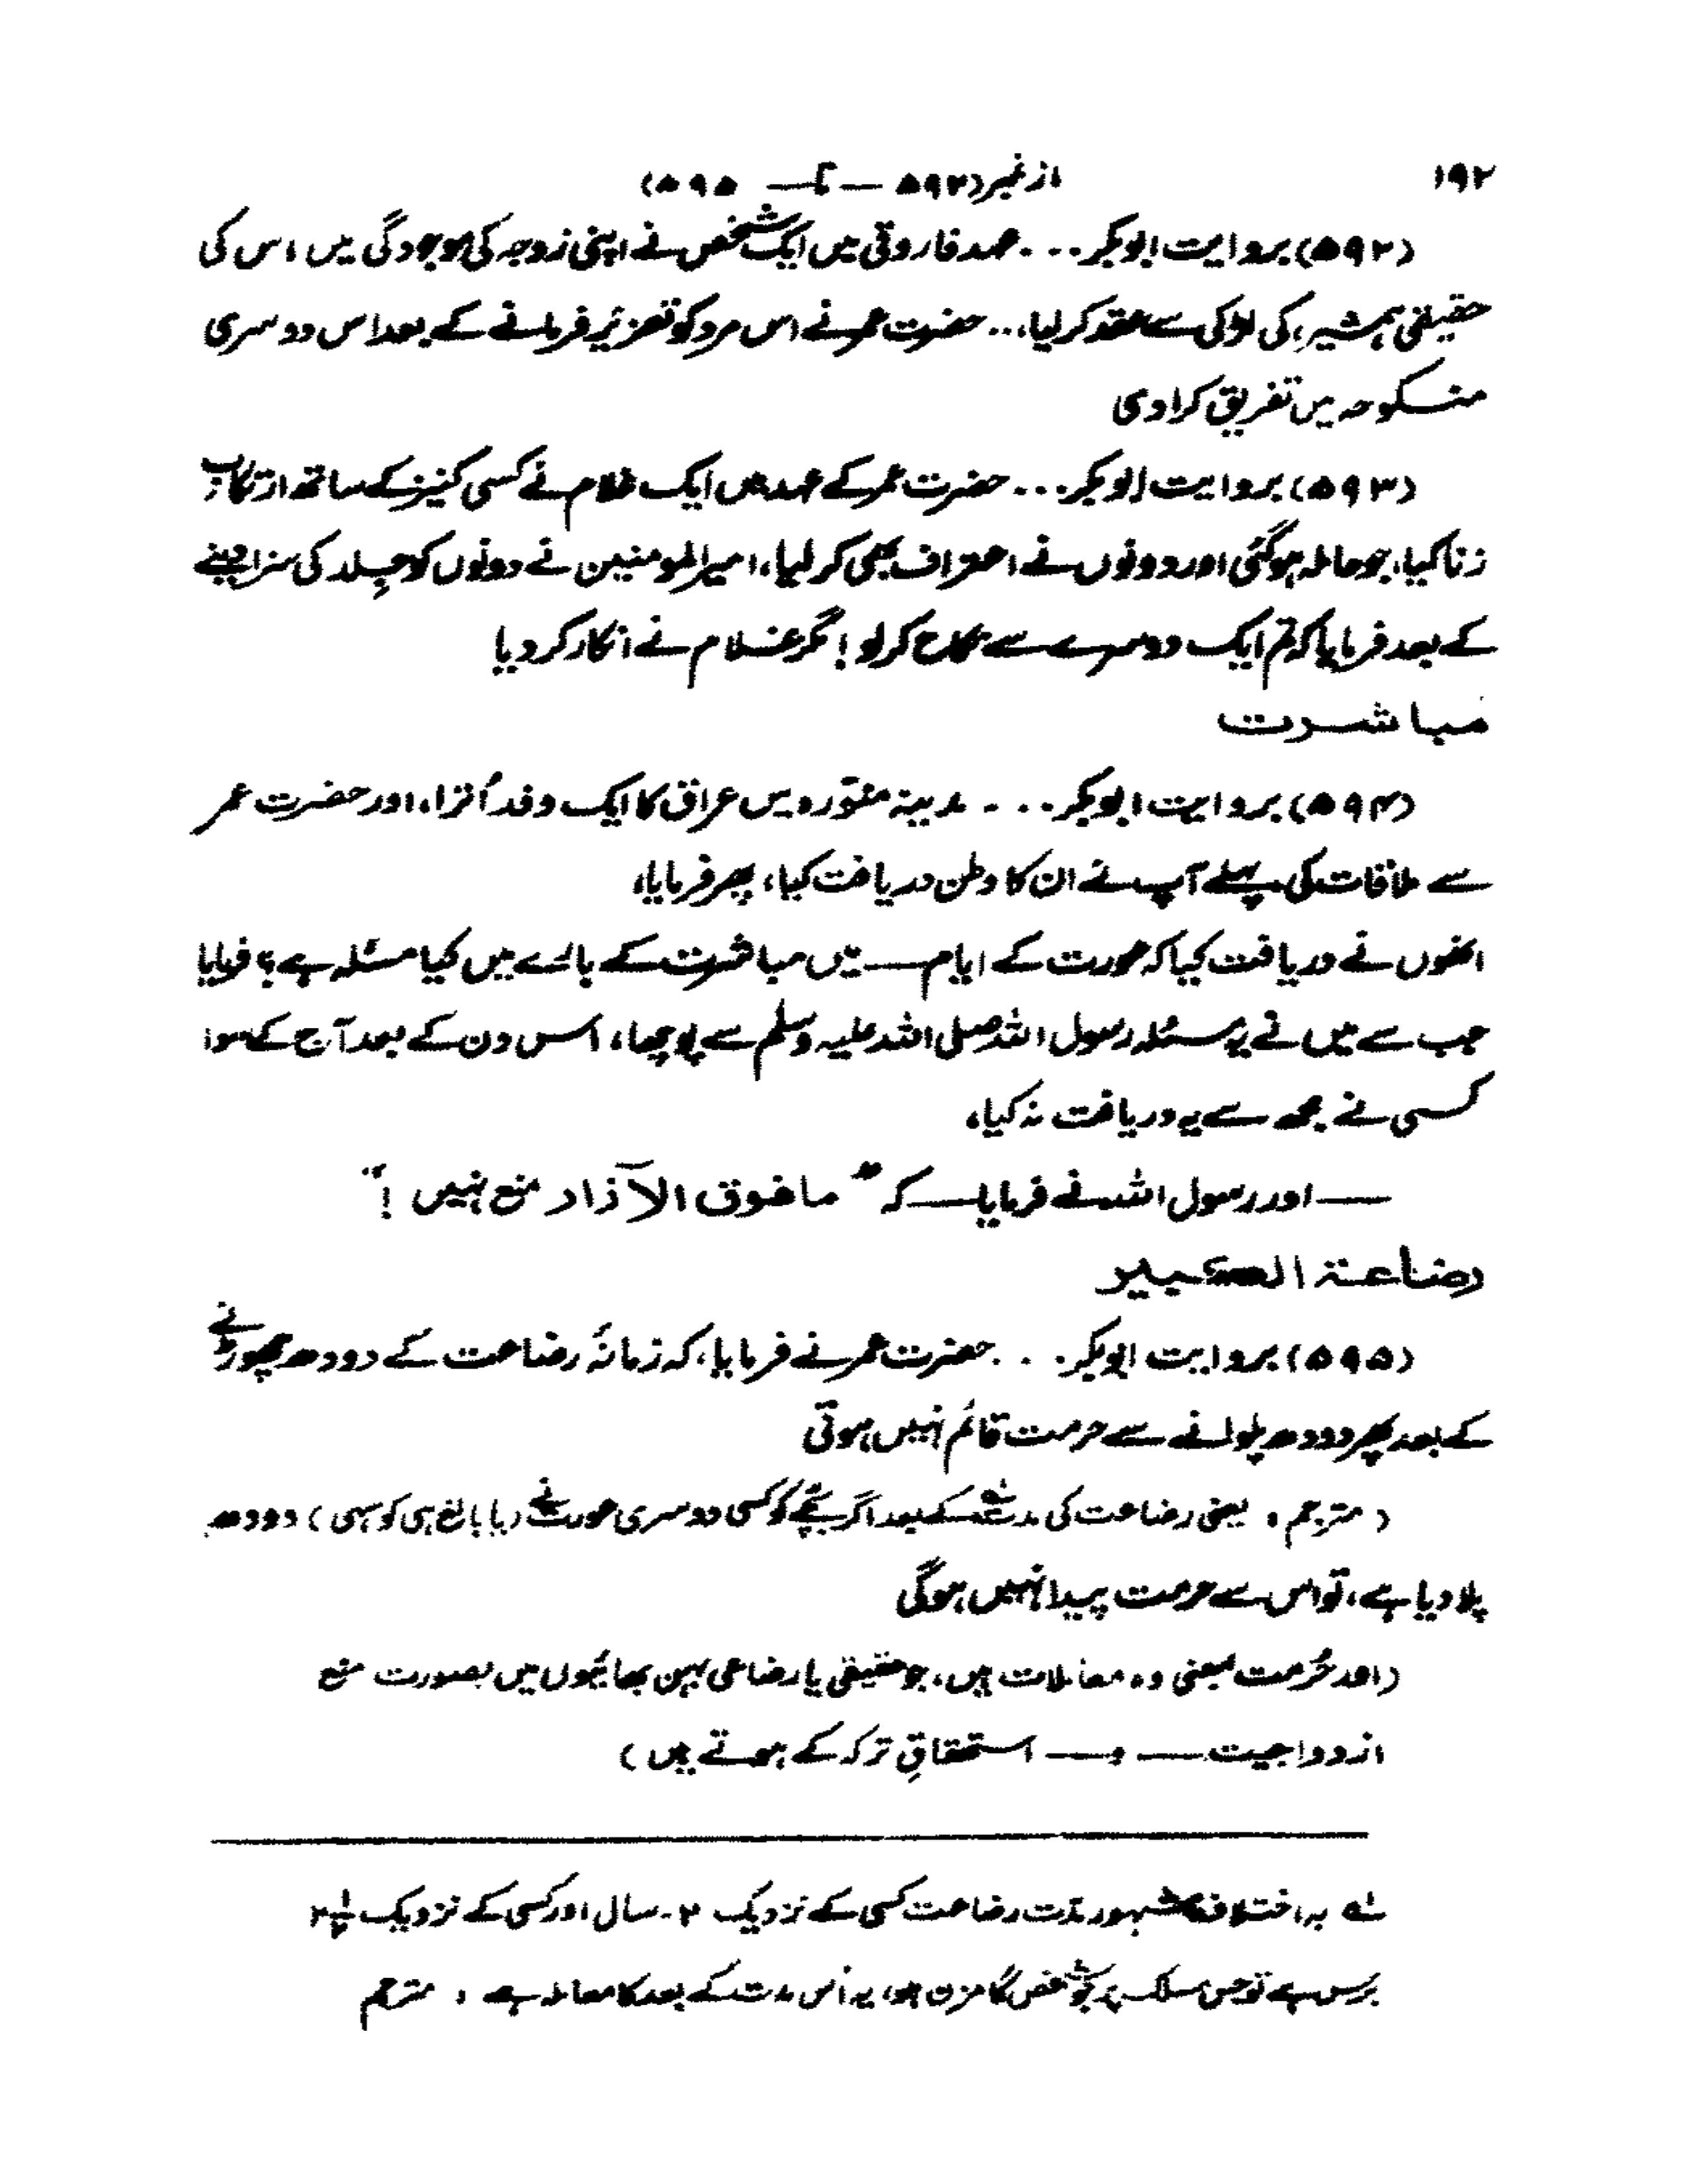 ۱۹۲
(از نمبر ۵۹۲ — تا — ۵۹۵)
(۵۹۲) بروایت ابوبکر... عہد فاروقی میں ایک شخص نے اپنی زوجہ کی موجودگی میں، اس کی
حقیقی ہمشیرہ کی لڑکی سے عقد کر لیا،... حضرت عمر نے اس مرد کو تعزیر فرمانے کے بعد اس دوسری
منکوحہ میں تفریق کرا دی
(۵۹۳) بروایت ابوبکر... حضرت عمر کے عہد میں ایک غلام نے کسی کنیز کے ساتھ ارتکاب
زنا کیا، جو حاملہ ہو گئی اور دونوں نے اعتراف بھی کر لیا، امیر المومنین نے دونوں کو جِلد کی سزا دینے
کے بعد فرمایا کہ تم ایک دوسرے سے نکاح کر لو! مگر غلام نے انکار کر دیا
مباشرت
(۵۹۴) بروایت ابوبکر... مدینہ منوّرہ میں عراق کا ایک وفد اُترا، اور حضرت عمر
سے ملاقات کی پہلے آپ نے ان کا وطن دریافت کیا، پھر فرمایا،
انھوں نے دریافت کیا کہ عورت کے ایام — میں مباشرت کے بارے میں کیا مسئلہ ہے؟ فرمایا
جب سے میں نے یہ مسئلہ رسول اللہ صلی اللہ علیہ وسلم سے پوچھا، اس دن کے بعد آج کے سوا
کسی نے مجھ سے یہ دریافت نہ کیا،
— اور رسول اللہ نے فرمایا — کہ "مافوق الآزار منع نہیں!"
رضاعۃ الکبیر
(۵۹۵) بروایت ابوبکر... حضرت عمر نے فرمایا، کہ زمانۂ رضاعت کے دودھ چھوڑنے
کے بعد پھر دودھ پلوانے سے حرمت قائم نہیں ہوتی
(مترجم، یعنی رضاعت کی مدت کے بعد اگر بچّے کو کسی دوسری عورت نے (یا بالغ ہی کو سہی) دودھ
پلا دیا ہے، تو اس سے حرمت پیدا نہیں ہوگی
(اور حُرمت بمعنی وہ معاملات ہیں، جو حقیقی یا رضاعی بہن بھائیوں میں بصورت منع
ازدواجیت — و — استحقاقِ ترکہ کے ہوتے ہیں)
لہ بہ اختلاف مشہور مدّت رضاعت کسی کے نزدیک ۲ سال اور کسی کے نزدیک ۲½
برس ہے تو جس مسلک پر جو شخص گامزن ہو، یہ اُس مدت کے بعد کا معاملہ ہے، مترجم